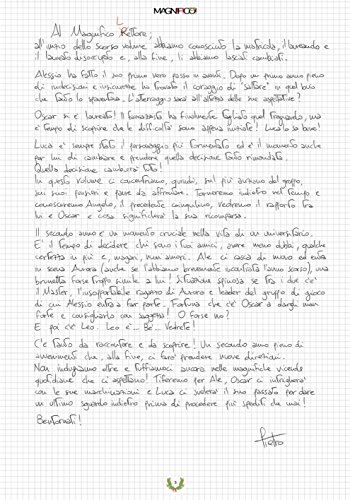 MAGNIFICO!
Al Magnifico Rettore;
all'inizio dello scorso volume abbiamo conosciuto la matricola, il laureando e
il laureato disoccupato e, alla fine, li abbiamo lasciati cambiati.
Alessio ha fatto il suo primo vero passo in avanti. Dopo un primo anno pieno
di indecisioni e insicurezze ha trovato il coraggio di "saltare" in quel buio
che tanto lo spaventava. L'atterraggio sarà all'altezza delle sue aspettative?
Oscar si è laureato! Il fancazzista ha finalmente tagliato quel traguardo, ma
è tempo di scoprire che le difficoltà sono appena iniziate! Lunga la barba!
Luca è sempre stato il personaggio più tormentato ed è il momento anche
per lui di cambiare e prendere quella decisione tanto rimandata.
Quella decisione cambierà tutto!
In questo volume ci concentreremo, quindi, sul più anziano del gruppo,
sui suoi pensieri e paure da affrontare. Torneremo indietro nel tempo e
conosceremo Angelo, il precedente coinquilino, vedremo il rapporto tra
lui e Oscar e cosa significherà la sua ricomparsa.
Il secondo anno è un momento cruciale nella vita di un universitario.
E' il tempo di decidere chi sono i tuoi amici, avere meno dubbi, qualche
certezza in più e, magari, nuovi amori. Ale ci casca di nuovo ed entra
in scena Aurora (anche se l'abbiamo brevemente incontrata l'anno scorso), una
brunetta forse troppo simile a lui! Situazione spinosa se tra i due c'è
il Master, l'insopportabile ragazzo di Aurora e leader del gruppo di gioco
di cui Alessio entra a far parte. Fortuna che c'è Oscar a dargli man
forte e consigliarlo con saggezza! O forse no?
E poi c'è Leo. Leo è... Be'... Vedrete!
C'è tanto da raccontare e da scoprire! Un secondo anno pieno di
avvenimenti che, alla fine, ci farà prendere nuove direzioni.
Non indugiamo oltre e tuffiamoci ancora nelle magnifiche vicende
quotidiane che ci aspettano! Tiferemo per Ale, Oscar ci intrigherà
con le sue macchinazioni e Luca ci svelerà il suo passato per dare
un ultimo sguardo indietro prima di procedere più spediti che mai!
Bentornati!
Pietro